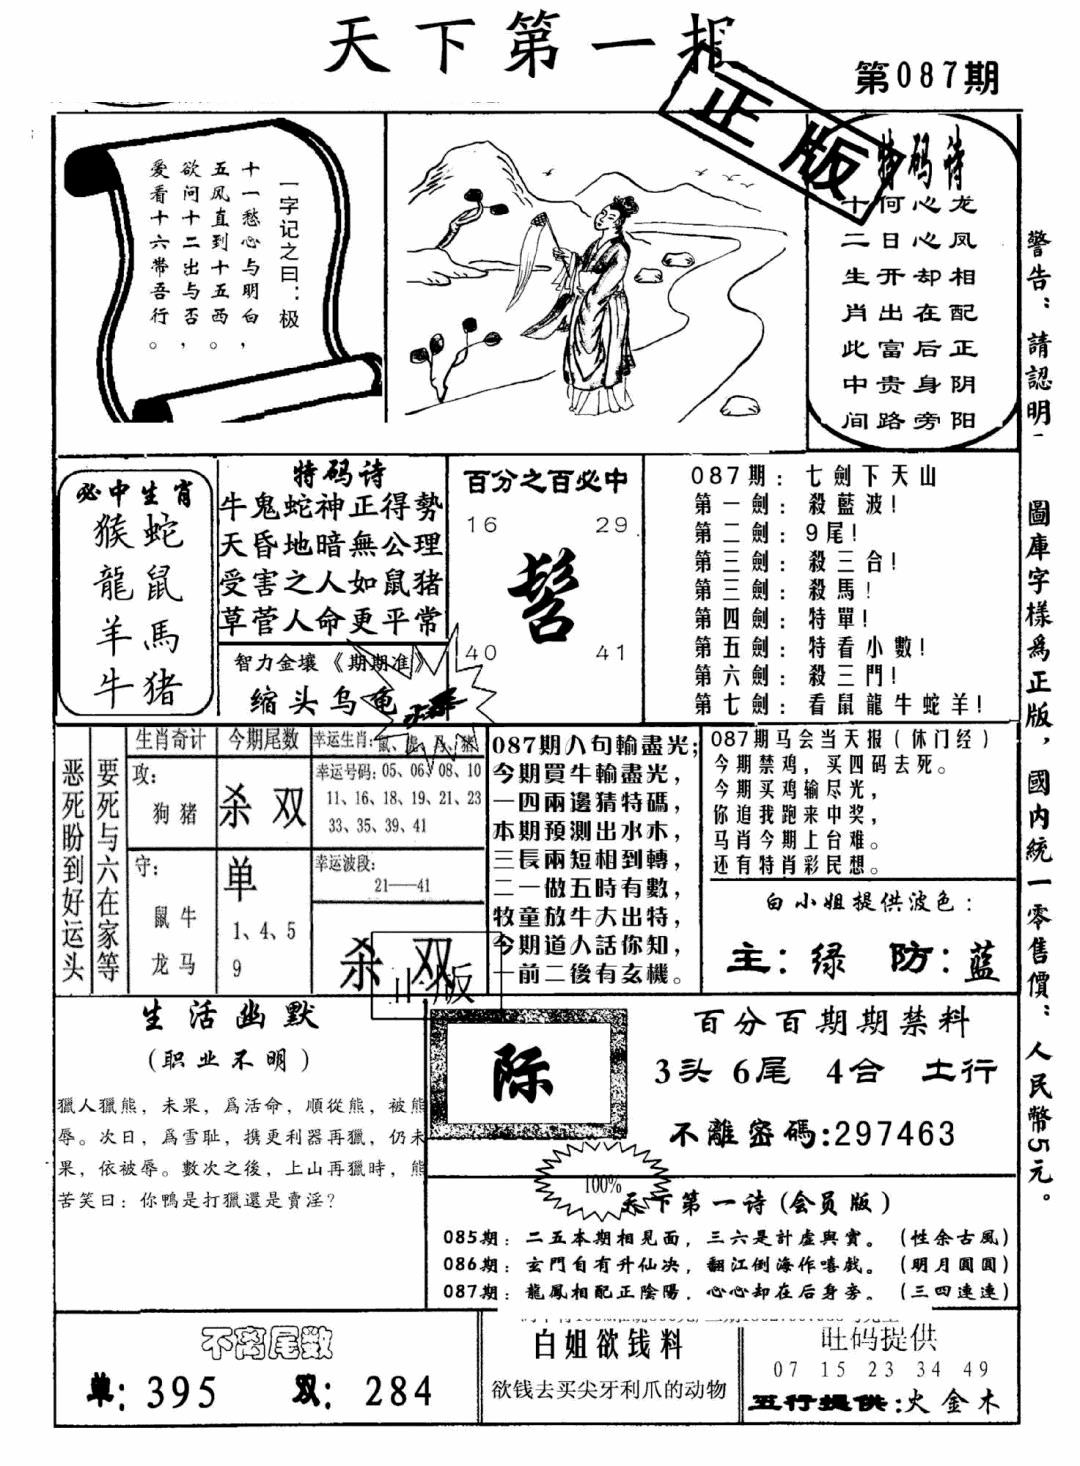 天下第一报
第087期
正版
一字记之曰：极
十一愁心与明白，
五风直到十五西。
欲问十二出与否，
爱看十六带吾行。
特码诗
龙凤相配正阴阳
心心却在后身旁
何日开出富贵路
十二生肖此中间
警告：請認明
圖庫字樣爲正版，國内統一零售價：人民幣5元。
必中生肖
猴蛇
龍鼠
羊馬
牛猪
特码诗
牛鬼蛇神正得勢
天昏地暗無公理
受害之人如鼠猪
草菅人命更平常
智力金壤《期期准》
缩头乌龟
百分之百必中
16 29
髻
40 41
087期：七劍下天山
第一劍：殺藍波！
第二劍：9尾！
第三劍：殺三合！
第三劍：殺馬！
第四劍：特單！
第五劍：特看小數！
第六劍：殺三門！
第七劍：看鼠龍牛蛇羊！
恶死盼到好运头
要死与六在家等
生肖奇计
攻：
狗猪
守：
鼠牛
龙马
今期尾数
杀双
单
1、4、5
9
幸运生肖：鼠、虎、马、猪
幸运号码：05、06、08、10
11、16、18、19、21、23
33、35、39、41
幸运波段：
21——41
杀双
正版
087期八句輸盡光；
今期買牛輸盡光，
一四兩邊猜特碼，
本期預測出水木，
三長兩短相到轉，
二一做五時有數，
牧童放牛大出特，
今期道人話你知，
一前二後有玄機。
087期马会当天报（休门经）
今期禁鸡，买四码去死。
今期买鸡输尽光，
你追我跑来中奖，
马肖今期上台难。
还有特肖彩民想。
白小姐提供波色：
主：绿 防：蓝
生活幽默
（职业不明）
獵人獵熊，未果，爲活命，順從熊，被熊
辱。次日，爲雪耻，携更利器再獵，仍未
果，依被辱。數次之後，上山再獵時，熊
苦笑曰：你鴨是打獵還是賣淫？
际
百分百期期禁料
3头 6尾 4合 土行
不離密碼:297463
100%
天下第一诗（会员版）
085期：二五本期相見面，三六是計虛與實。（性余古風）
086期：玄門自有升仙决，翻江倒海作嘻戲。（明月圓圓）
087期：龍鳳相配正陰陽，心心却在后身旁。（三四連連）
不离尾数
单：395 双：284
白姐欲钱料
欲钱去买尖牙利爪的动物
旺码提供
07 15 23 34 49
五行提供：火金木